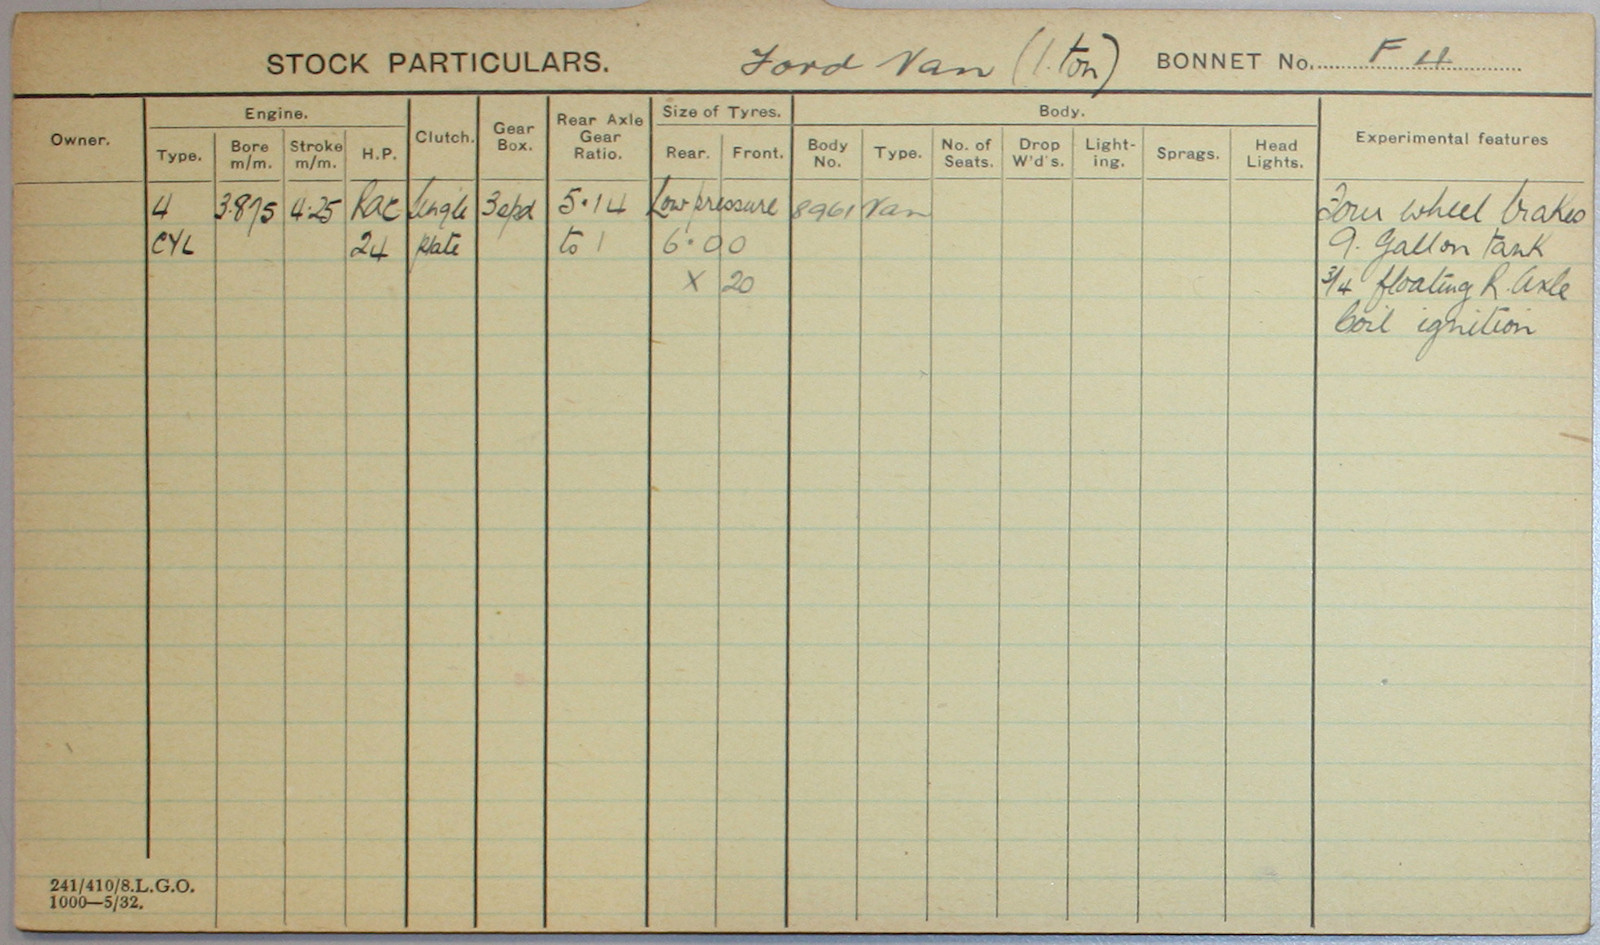 STOCK PARTICULARS. Ford Van (1. ton) BONNET No. F 4
Owner. Engine. Clutch. Gear Box. Rear Axle Gear Ratio. Size of Tyres. Body. Experimental features
Type. Bore m/m. Stroke m/m. H.P. Rear. Front. Body No. Type. No. of Seats. Drop W'd's. Light-ing. Sprags. Head Lights.
4 3.875 4.25 Rac Single 3 spd 5.14 Low pressure 8961 Van Four wheel brakes
CYL 24 plate to 1 6.00 9. Gallon tank
X 20 3/4 floating R. Axle
Coil ignition
241/410/8.L.G.O.
1000—5/32.